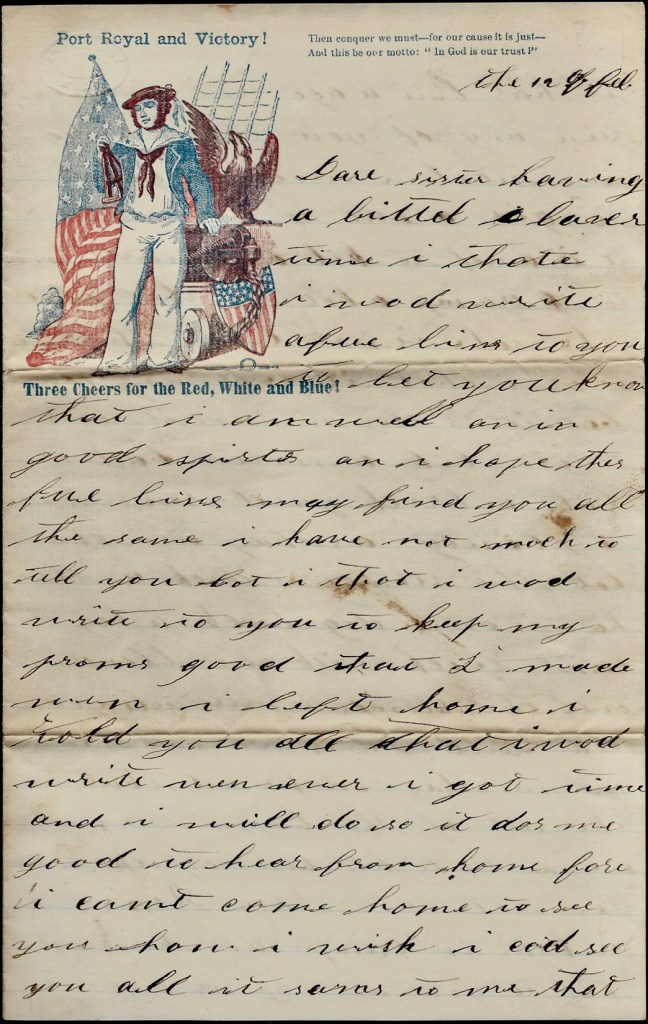 Port Royal and Victory!
Then conquer we must—for our cause it is just—
And this be our motto: "In God is our trust!"
the 12 of feb
Dare sister having
a littel laser
time i thote
i wod write
afue lins to you
to let you know
that i am well an in
good spirts an i hope thes
fue lines may find you all
the same i have not moch to
tell you bot i thot i wod
write to you to keep my
proms good that I made
wen i left home i
told you all that i wod
write wen ever i got time
and i will do so it dos me
good to hear from home fore
i camt come home to see
you how i wish i cod see
you all it sams to me that
Three Cheers for the Red, White and Blue!